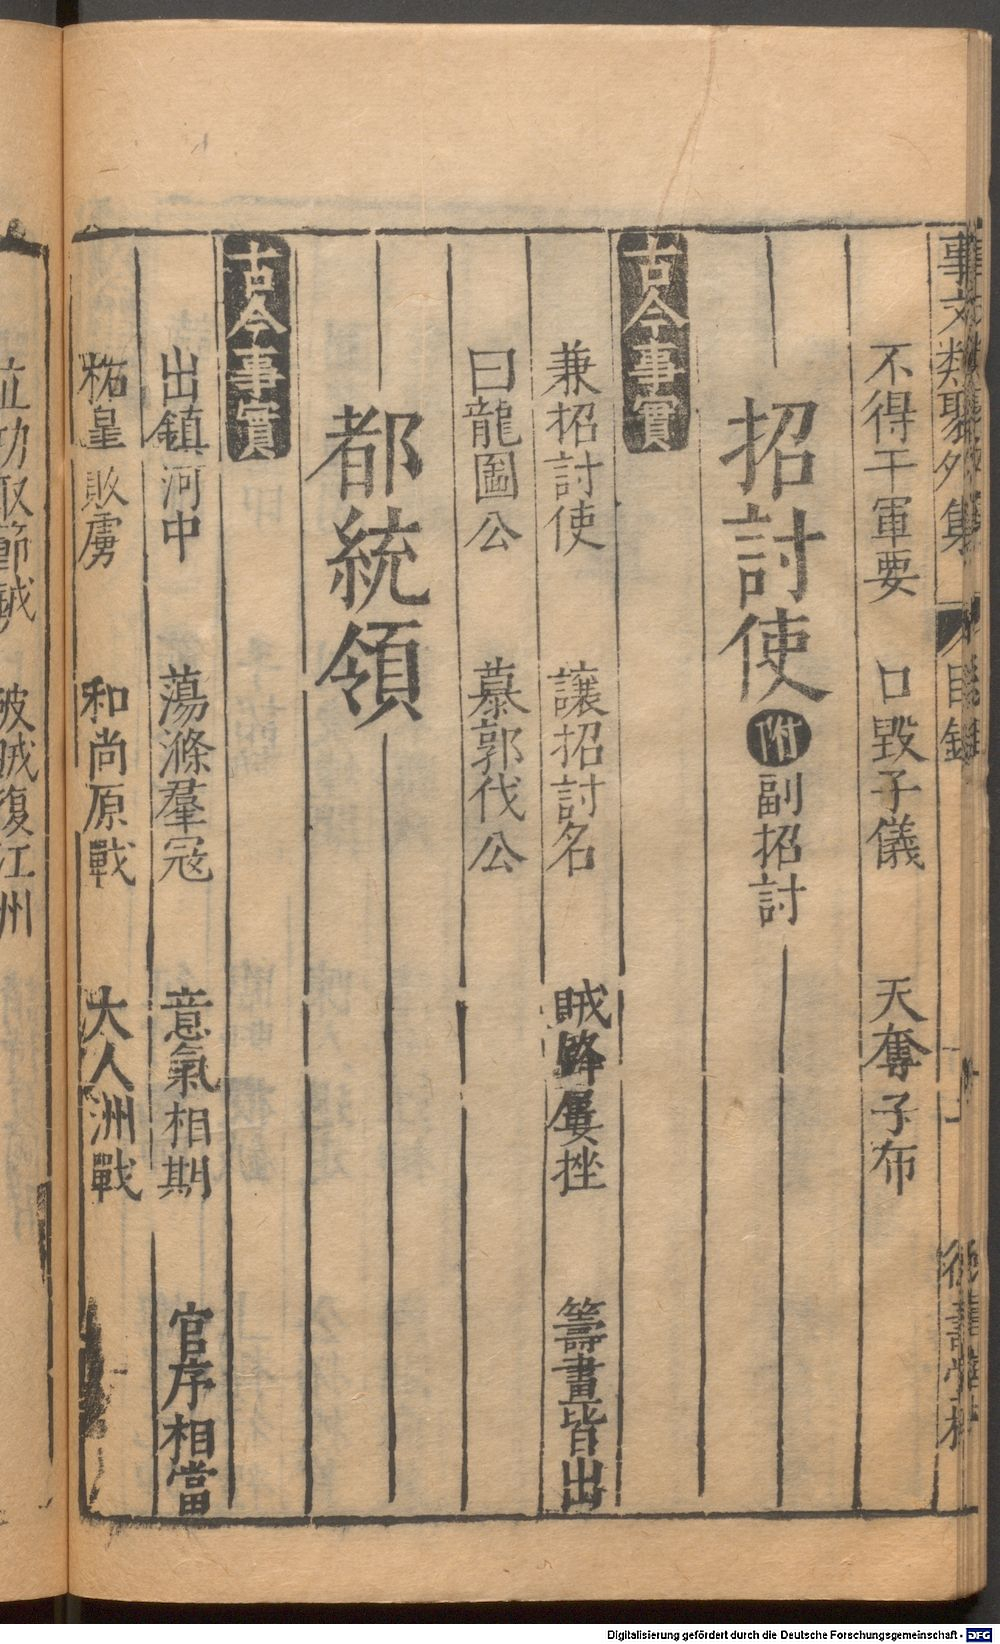 事文類聚外集 目錄
不得干軍要 口毀子儀 天奪子布
招討使 附 副招討
古今事實
兼招討使 讓招討名 賊鋒屢挫 籌畫皆出
曰龍圖公 慕郭代公
都統領
古今事實
出鎮河中 蕩滌羣冦 意氣相期 官序相當
柘皐敗虜 和尚原戰 大人洲戰
立功取節鉞 破賊復江州
Digitalisierung gefördert durch die Deutsche Forschungsgemeinschaft - DFG